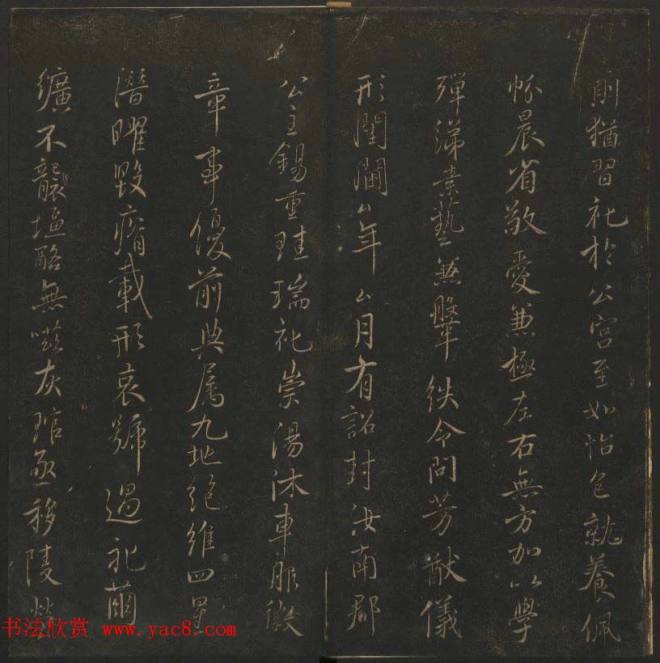 則猶習礼於公宮至如怡色就養佩
帉晨省敬愛兼極左右無方加以學
殫綈素藝兼鞶紩令問芳猷儀
形閨閫厶年厶月有詔封汝南郡
公主錫重珪瑞礼崇湯沐車服徽
章事優前典属九地絕維四星
潛曜毀瘠載形哀號過礼繭
纊不襲塩酪無嗞灰琯亟移陵
书法欣赏 www.yac8.com